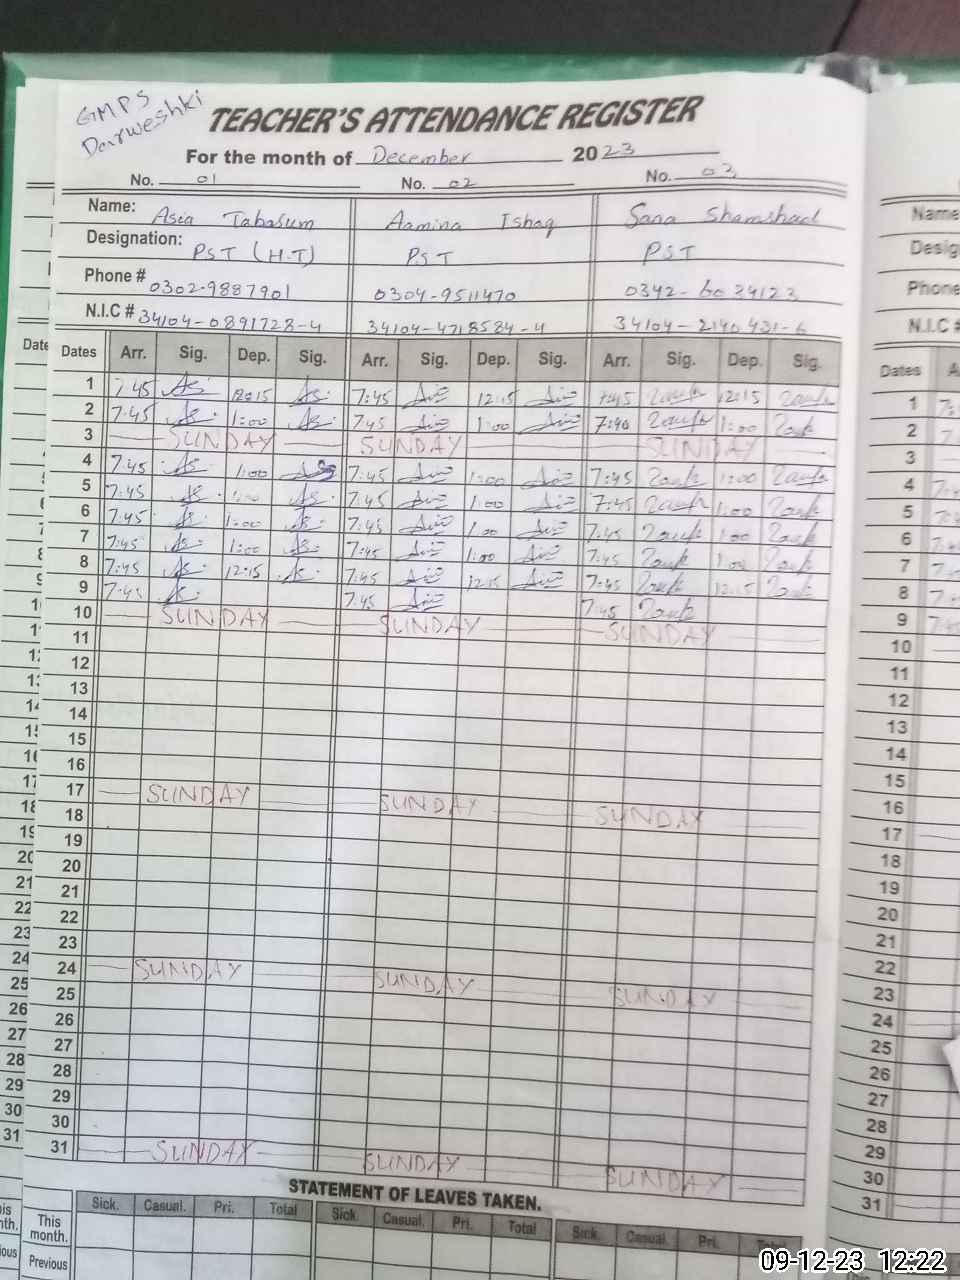 GMPS
Darweshki
TEACHER'S ATTENDANCE REGISTER
For the month of December 2023
No. 01 No. 02 No. 03
Name: Asia Tabasum Aamina Ishaq Sana Shamshad
Designation: PST (H.T) PST PST
Phone # 0302-9887901 0304-9511470 0342-6034123
N.I.C # 34104-0891728-4 34104-4718584-4 34104-2140431-6
Dates Arr. Sig. Dep. Sig. Arr. Sig. Dep. Sig. Arr. Sig. Dep. Sig.
1 7:45 12:15 7:45 12:15 7:45 12:15
2 7:45 1:00 7:45 1:00 7:40 1:00
3 SUNDAY SUNDAY SUNDAY
4 7:45 1:00 7:45 1:00 7:45 1:00
5 7:45 7:45 1:00 7:45 1:00
6 7:45 1:00 7:45 1:00 7:45 1:00
7 7:45 1:00 7:45 1:00 7:45 1:00
8 7:45 12:15 7:45 12:15 7:45 12:15
9 7:45 7:45 7:45
10 SUNDAY SUNDAY SUNDAY
11
12
13
14
15
16
17 SUNDAY SUNDAY SUNDAY
18
19
20
21
22
23
24 SUNDAY SUNDAY SUNDAY
25
26
27
28
29
30
31 SUNDAY SUNDAY SUNDAY
STATEMENT OF LEAVES TAKEN.
Sick. Casual. Pri. Total Sick. Casual. Pri. Total Sick. Casual. Pri. Total
This month.
Previous
Name
Phone
N.I.C #
Dates
1
2
3
4
5
6
7
8
9
10
11
12
13
14
15
16
17
18
19
20
21
22
23
24
25
26
27
28
29
30
31
09-12-23 12:22